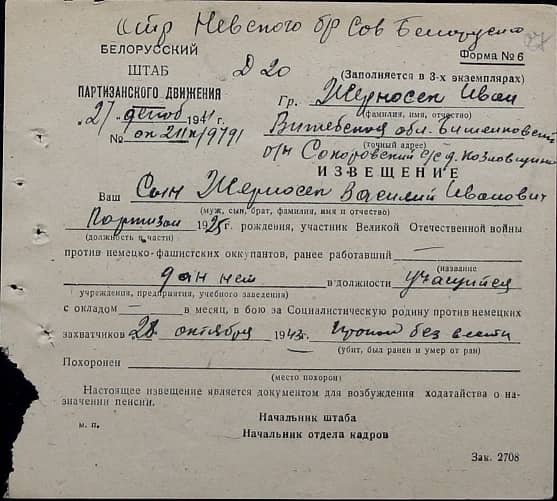 отр Невского бр Сов Белоруссия
БЕЛОРУССКИЙ
ШТАБ
ПАРТИЗАНСКОГО ДВИЖЕНИЯ
Д 20
Форма № 6
(Заполняется в 3-х экземплярах)
"27" декаб 194 г.
Гр. Жерносек Иван
(фамилия, имя, отчество)
№
Витебская обл. Бешенковский
(точный адрес)
р/н с/с д. Козловщина
ИЗВЕЩЕНИЕ
Ваш Сын Жерносек Василий Иванович
(муж, сын, брат, фамилия, имя и отчество)
Партизан 1925г. рождения, участник Великой Отечественной войны
(должность в части)
против немецко-фашистских оккупантов, ранее работавший —
(название
дан нет в должности учащийся
учреждения, предприятия, учебного заведения)
с окладом — в месяц, в бою за Социалистическую родину против немецких
захватчиков 28 октября 1943г. пропал без вести
(убит, был ранен и умер от ран)
Похоронен
(место похорон)
Настоящее извещение является документом для возбуждения ходатайства о на-
значении пенсии.
Начальник штаба
м. п.
Начальник отдела кадров
Зак. 2708